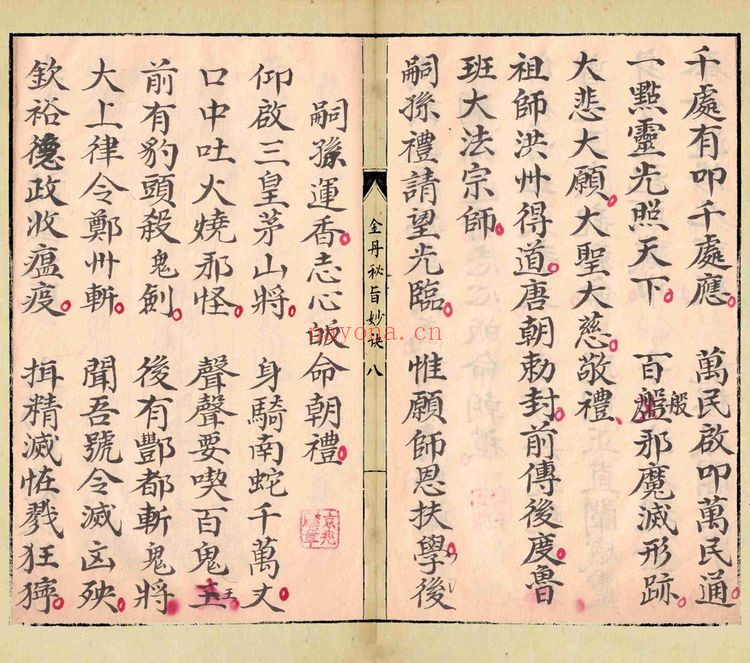 千處有叩千處應。 萬民啟叩萬民通
一點靈光照天下。 百盤般邪魔滅形跡。
大悲大願。大聖大慈。敬禮。
祖師洪州得道。唐朝勅封。前傳後度。魯
班大法宗師。
嗣孫禮請望光臨。 惟願師恩扶學後
金丹祕旨妙訣 八
嗣孫運香。志心皈命朝禮。
仰啟三皇茅山將。 身騎南蛇千萬丈
口中吐火燒邪怪。 聲聲要喫百鬼王
前有豹頭殺鬼劍。 後有酆都斬鬼將
大上律令鄭州斬。 聞吾號令滅凶殃。
欽裕德政收瘟疫。 揖精滅怪戮狂獰。
nayona.cn